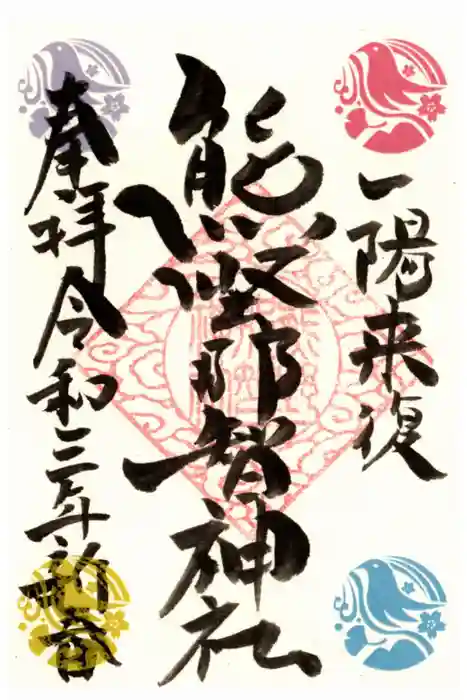 一陽来復
熊野那智神社
奉拝 令和三年 新春